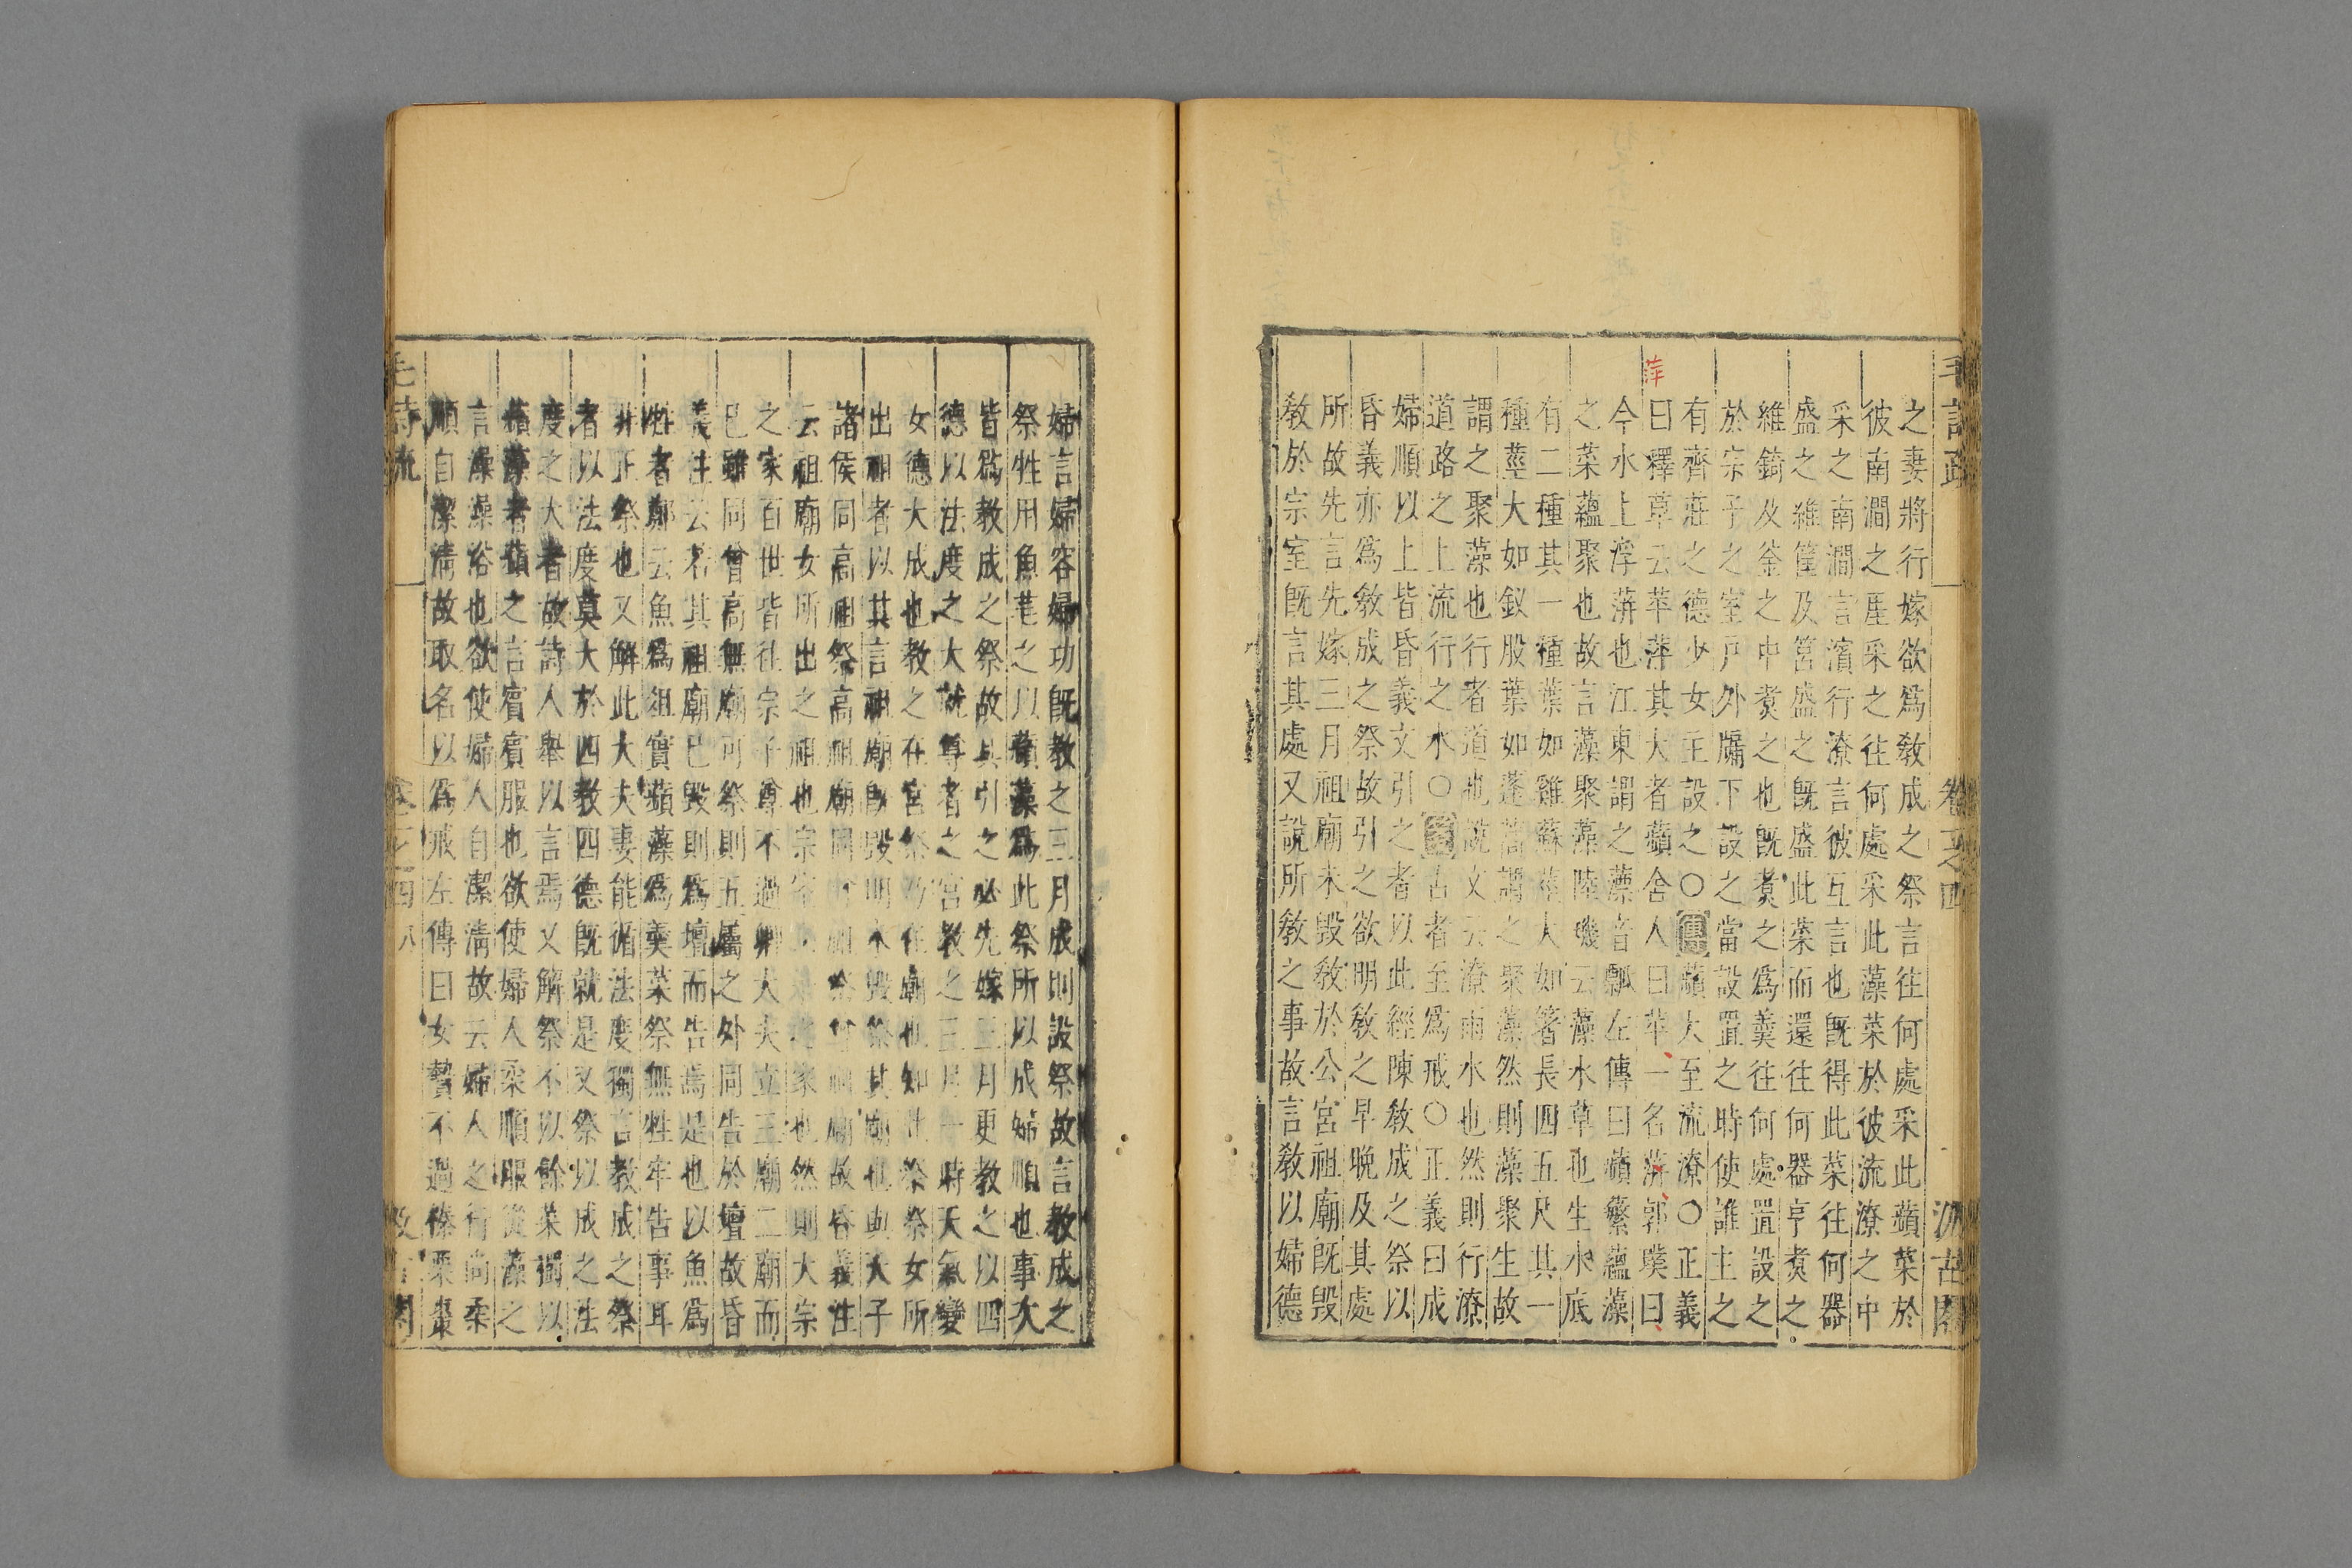 之妻將行嫁欲爲敎成之祭言往何處采此蘋菜於
彼南澗之厓采之往何處采此藻菜於彼流潦之中
采之南澗言濱行潦言彼互言也旣得此菜往何器
盛之維筐及筥盛之旣盛此菜而還往何器亨煑之
維錡及釜之中煑之也旣煑之爲羹往何處置設之
於宗子之室戸外牖下設之當設置之時使誰主之
有齊莊之德少女主設之○傳蘋大至流潦○正義
萍
曰釋草云苹蓱其大者蘋舍人曰苹一名蓱郭璞曰
今水上浮蓱也江東謂之薸音瓢左傳曰蘋蘩蘊藻
之菜蘊聚也故言藻聚藻陸璣云藻水草也生水底
有二種其一種葉如雞蘇莖大如箸長四五尺其一
種莖大如釵股葉如蓬蒿謂之聚藻然則藻聚生故
謂之聚藻也行者道也說文云潦雨水也然則行潦
道路之上流行之水○箋古者至爲戒○正義曰成
婦順以上皆昏義文引之者以此經陳敎成之祭以
昏義亦爲敎成之祭故引之欲明敎之早晚及其處
所故先言先嫁三月祖廟未毀敎於公宮祖廟旣毀
敎於宗室旣言其處又說所敎之事故言敎以婦德
婦言婦容婦功旣教之三月成則設祭故言教成之
祭牲用魚芼之以蘋藻爲此祭所以成婦順也事大
皆爲教成之祭故具引之必先嫁三月更教之以四
德以法度之大就尊者之宮教之三月一時天氣變
女德大成也教之在宮祭乃在廟也知此祭祭女所
出祖者以其言祖廟旣毀明未毀祭其廟也與天子
諸侯同高祖祭高祖廟同 故昏義注
云祖廟女所出之祖也宗 家也然則大宗
之家百世皆往宗子尊不過卿大夫立三廟二廟而
已雖同曾高無廟可祭則五屬之外同告於壇故昏
義注云若其祖廟已毀則爲壇而告焉是也以魚爲
牲者鄭云魚爲俎實蘋藻爲羹菜祭無牲牢告事耳
非正祭也又解此大夫妻能循法度獨言教成之祭
者以法度莫大於四教四德旣就是又祭以成之法
度之大者故詩人舉以言焉又解祭不以餘菜獨以
蘋藻者蘋之言賓賓服也欲使婦人柔順服從藻之
言澡澡浴也欲使婦人自潔淸故云婦人之行尚柔
順自潔淸故取名以爲戒左傳曰女贄不過榛栗棗